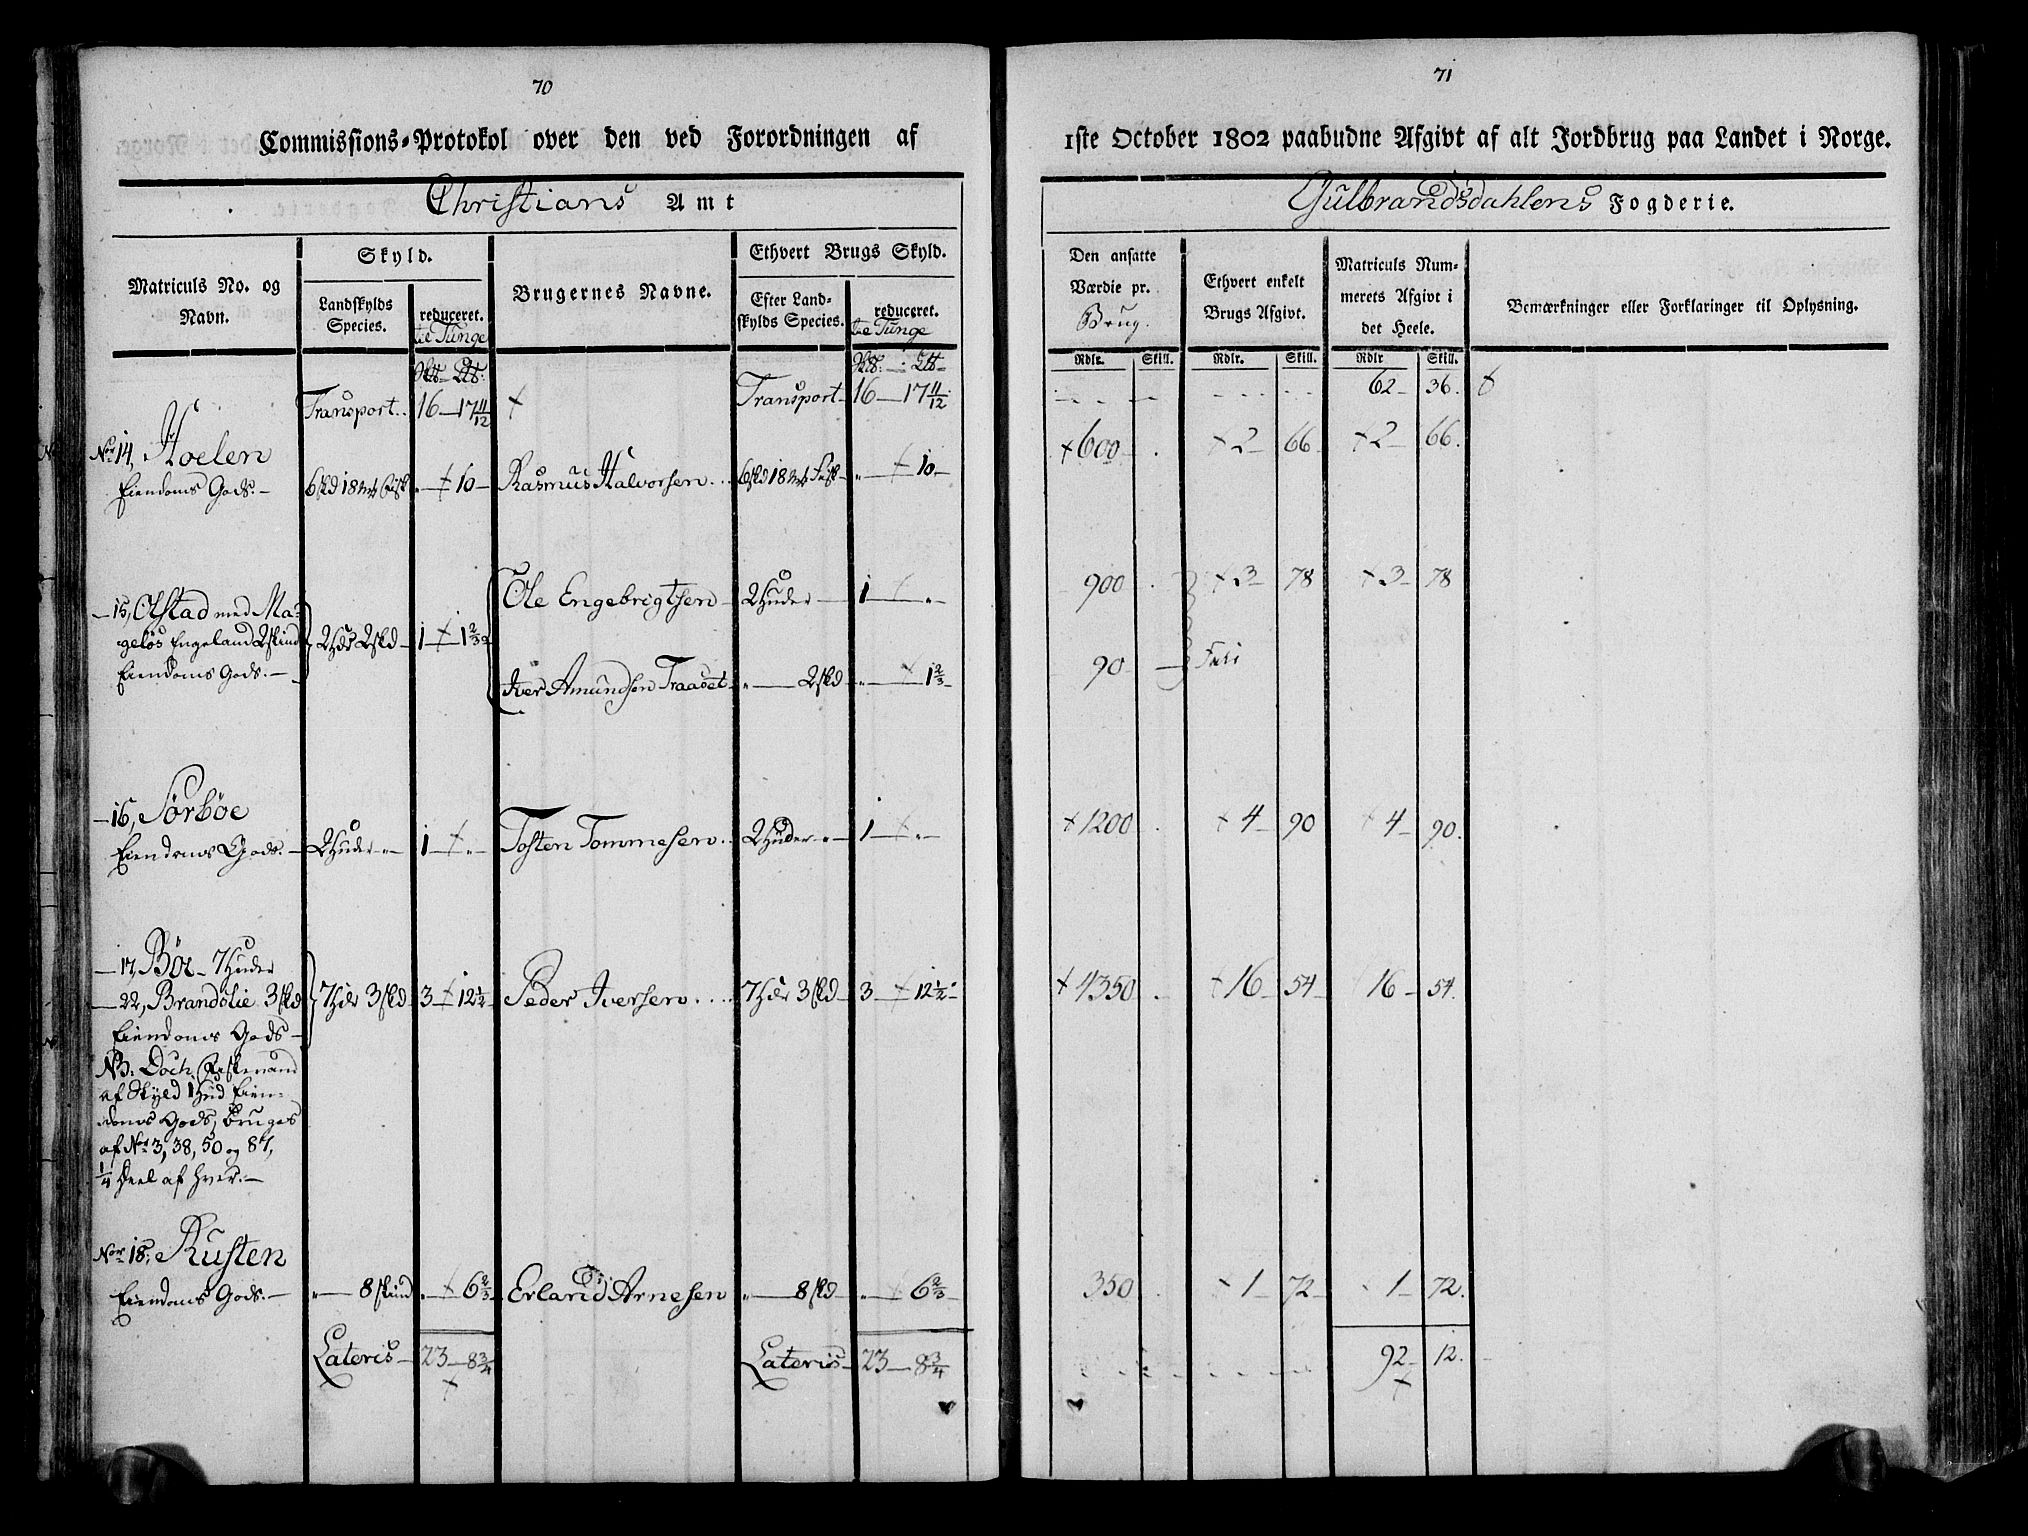 70
Commissions-Protokol over den ved Forordningen af
Christians Amt
Matriculs No. og Navn.
Skyld.
Landskylds Species.
reduceret.
til Tunge
Brugernes Navne.
Ethvert Brugs Skyld.
Efter Landskylds Species.
reduceret.
til Tunge
Transport 16 17 11/12 Transport 16 17 11/12
Nor 14, Hoelen
Eiendoms Gods. 6 skd 18 mk Fisk " 10 Rasmus Halvorsen 6 skd 18 mk Fisk " 10
15, Olstad med Ma-
geløs Engeland 2 skind 2 Hdr 2 skd 1 1 2/3
Eiendoms Gods.
Ole Engebrigtsen 2 Huder 1 "
Iver Amundsen Traaset " 2 skd " 1 2/3
16, Sørbøe
Eiendoms Gods. 2 Huder " 1 " Tosten Tommesen 2 Huder " 1 "
17, Bøe 7 Huder
22, Brandslie 3 skd 7 Hdr 3 skd 3 12 1/2 Peder Iversen 7 Hdr 3 skd 3 12 1/2
Eiendoms Gods
NB: Doch Fiskevand
af Skyld 1 Hud Eien-
doms Gods, bruges
af Nor 3, 38, 50 og 87,
1/4 Deel af hver.
Nor 18, Rusten
Eiendoms Gods. " 8 skind " 6 2/3 Erland Arnesen " 8 skd " 6 2/3
Lateris 23 8 3/4 Lateris 23 8 3/4
71
1ste October 1802 paabudne Afgivt af alt Jordbrug paa Landet i Norge.
Gulbrandsdahlens Fogderie.
Den ansatte Værdie pr.
Brug.
Ethvert enkelt Brugs Afgivt.
Matriculs Nummerets Afgivt i det Heele.
Bemærkninger eller Forklaringer til Oplysning.
Rdlr. Skill. Rdlr. Skill. Rdlr Skill.
62 36
600 2 66 2 66
900 3 78 3 78
90 Fri
1200 4 90 4 90
4350 16 54 16 54
350 1 72 1 72
92 12